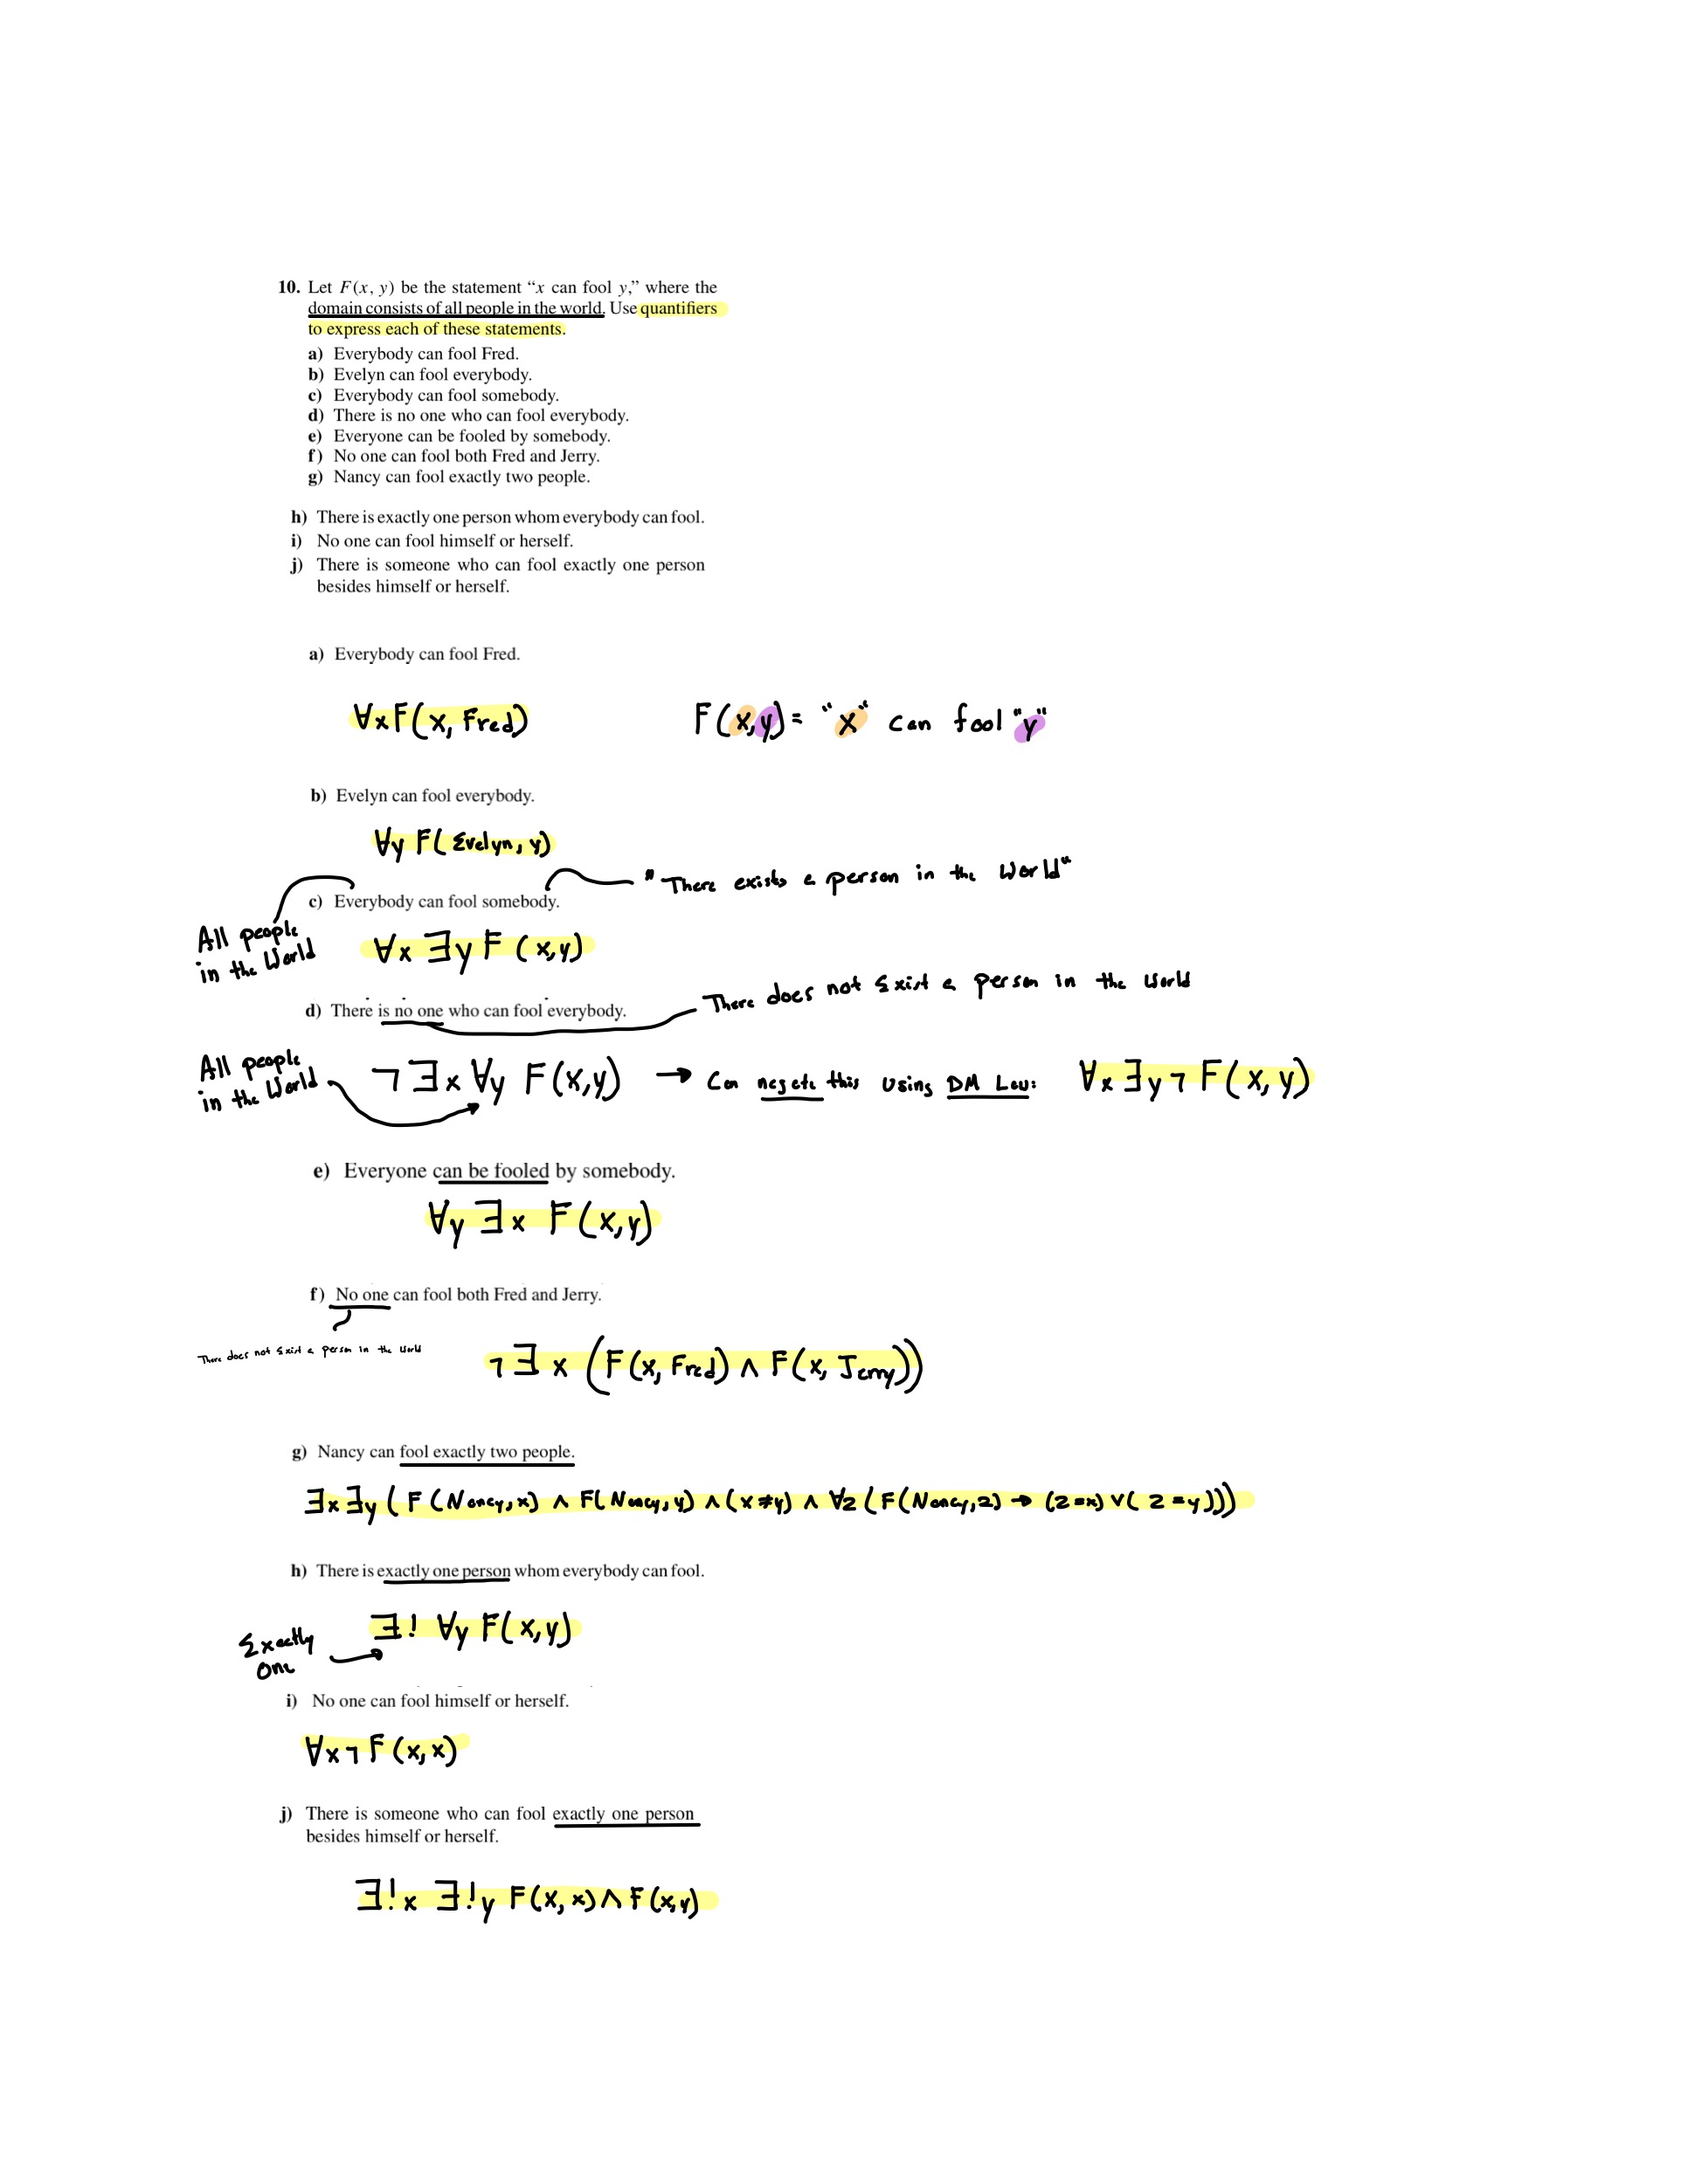 10. Let F(x, y) be the statement “x can fool y,” where the
domain consists of all people in the world. Use quantifiers
to express each of these statements.
a) Everybody can fool Fred.
b) Evelyn can fool everybody.
c) Everybody can fool somebody.
d) There is no one who can fool everybody.
e) Everyone can be fooled by somebody.
f) No one can fool both Fred and Jerry.
g) Nancy can fool exactly two people.
h) There is exactly one person whom everybody can fool.
i) No one can fool himself or herself.
j) There is someone who can fool exactly one person
besides himself or herself.
a) Everybody can fool Fred.
∀x F(x, Fred)
F(x,y) = "x" can fool "y"
b) Evelyn can fool everybody.
∀y F(Evelyn, y)
"There exists a person in the World"
c) Everybody can fool somebody.
All people
in the World
∀x ∃y F(x,y)
There does not Exist a person in the World
d) There is no one who can fool everybody.
All people
in the World
¬∃x ∀y F(x,y) → Can negate this Using DM Law: ∀x ∃y ¬F(x,y)
e) Everyone can be fooled by somebody.
∀y ∃x F(x,y)
f) No one can fool both Fred and Jerry.
There does not Exist a person in the World
¬∃x (F(x, Fred) ∧ F(x, Jerry))
g) Nancy can fool exactly two people.
∃x ∃y (F(Nancy, x) ∧ F(Nancy, y) ∧ (x ≠ y) ∧ ∀z (F(Nancy, z) → (z = x) ∨ (z = y)))
h) There is exactly one person whom everybody can fool.
Exactly
One
∃! ∀y F(x,y)
i) No one can fool himself or herself.
∀x ¬F(x,x)
j) There is someone who can fool exactly one person
besides himself or herself.
∃!x ∃!y F(x,x) ∧ F(x,y)